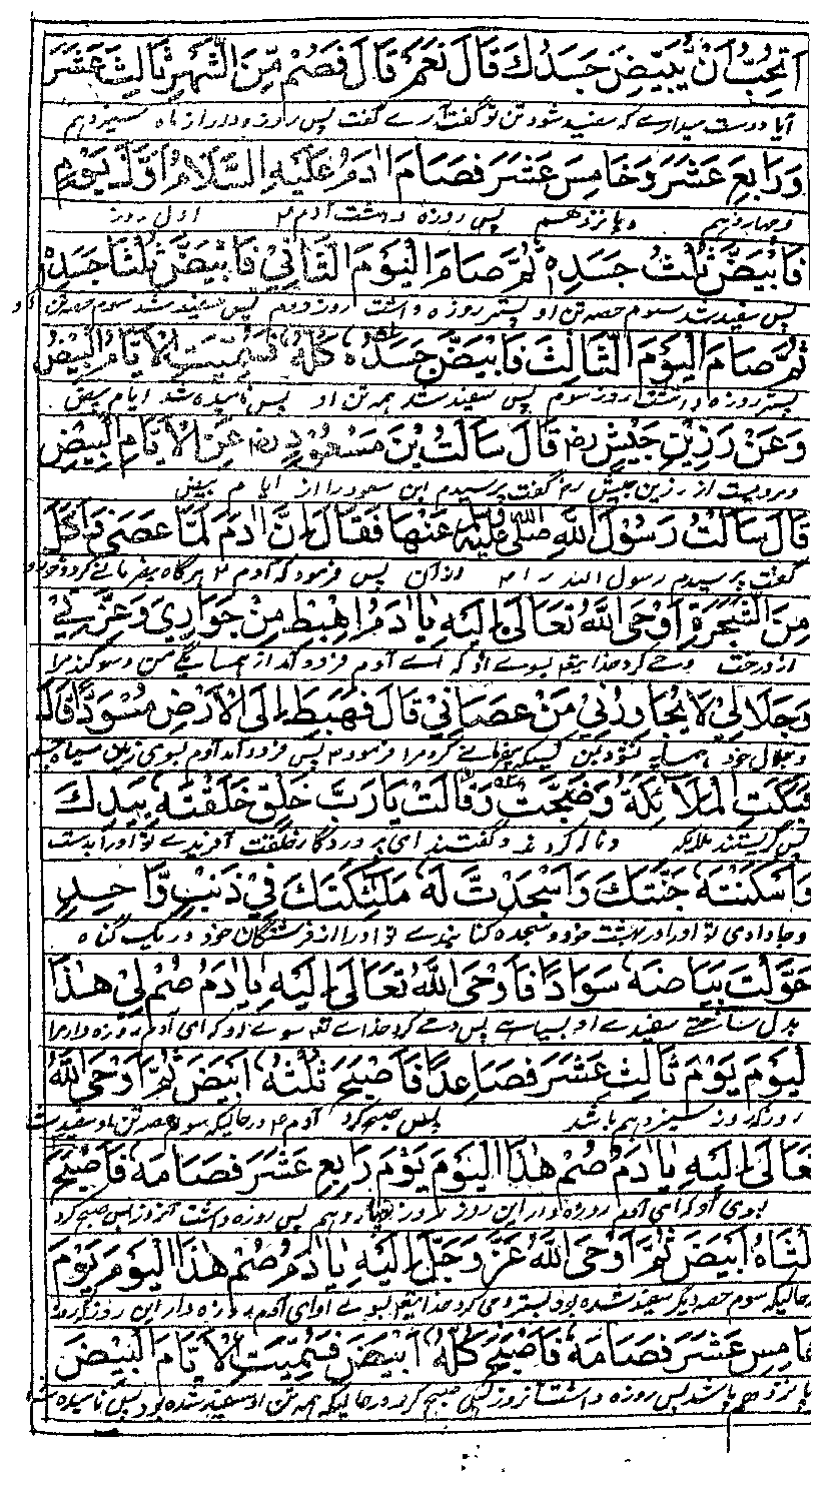 اَتُحِبُّ اَنْ يُبَيِّضَ جَسَدُكَ قَالَ نَعَمْ قَالَ فَصُمْ مِّنَ الشَّهْرِ ثَالِثَ عَشَرَ
آیا دوست میداری که سفید شود تن تو گفت آرے گفت پس روزه دار از ماه سیزدهم
وَرَابِعَ عَشَرَ وَخَامِسَ عَشَرَ فَصَامَ اٰدَمُ عَلَيْهِ السَّلَامُ اَوَّلَ يَوْمٍ
وچهاردهم وپانزدهم پس روزه داشت آدم ۴ اول روز
فَابْيَضَّ ثُلُثُ جَسَدِهٖ ثُمَّ صَامَ الْيَوْمَ الثَّانِيْ فَابْيَضَّ ثُلُثَا جَسَدِهٖ
پس سفید شد سوم حصه تن او پستر روزه داشت روز دوم پس سفید شد سوم حصه تن او
ثُمَّ صَامَ الْيَوْمَ الثَّالِثَ فَابْيَضَّ جَسَدُهٗ كُلُّهٗ فَسُمِّيَتِ الْاَيَّامُ الْبِيْضُ
پستر روزه داشت روز سوم پس سفید شد همه تن او پس نامیده شد ایام بیض
وَعَنْ رَزِيْنِ حَبِيْشٍ رض قَالَ سَاَلْتُ بْنَ مَسْعُوْدٍ رض عَنِ الْاَيَّامِ الْبِيْضِ
ومرویست از رزین حبیش رض گفت پرسیدم ابن مسعود را از ایام بیض
قَالَ سَاَلْتُ رَسُوْلَ اللهِ صَلَّى اللهُ عَلَيْهِ وَسَلَّمَ عَنْهَا فَقَالَ اِنَّ اٰدَمَ لَمَّا عَصٰى وَاَكَلَ
گفت پرسیدم رسول الله را از آن پس فرمود که آدم ۴ هرگاه بیفرمانے کرد وخورد
مِنَ الشَّجَرَةِ اَوْحَى اللهُ تَعَالٰى اِلَيْهِ يَا اٰدَمُ اهْبِطْ مِنْ جَوَارِيْ وَعِزَّتِيْ
از درخت وحے کرد خدایتعالی بسوے او که اے آدم فرود آ از همسایگے من وسوگند مرا
وَجَلَالِيْ لَا يُجَاوِرُنِيْ مَنْ عَصَانِيْ قَالَ فَهَبَطَ اِلَى الْاَرْضِ مُسْوَدًّا قَالَ
وجلال خود همسایه نشود من کسیکه بیفرمانے کرد مرا فرمود پس فرود آمد آدم بسوی زمین سیاه
فَبَكَتِ الْمَلَائِكَةُ وَضَجَّتْ وَقَالَتْ يَا رَبِّ خَلْقٌ خَلَقْتَهٗ بِيَدِكَ
پس گریستند ملائکه وناله کردند وگفتند ای پروردگار خلقت آفریدے تو او را بدست
وَاَسْكَنْتَهٗ جَنَّتَكَ وَاَسْجَدْتَ لَهٗ مَلٰئِكَتَكَ فِيْ ذَنْبٍ وَّاحِدٍ
وجا دادی تو او را در بهشت خود وسجده کنانیدے تو او را از فرشتگان خود در یک گناه
حَوَّلْتَ بَيَاضَهٗ سَوَادًا فَاَوْحَى اللهُ تَعَالٰى اِلَيْهِ يَا اٰدَمُ صُمْ لِيْ هٰذَا
بدل ساختے سفیدے او بسیاهے پس وحے کرد خداے تعالی سوے او که ای آدم روزه دار مرا
لْيَوْمَ يَوْمَ ثَالِثَ عَشَرَ فَصَامَ عِدًا فَاَصْبَحَ ثُلُثُهٗ اَبْيَضَ ثُمَّ اَوْحَى اللهُ
روز که روز سیزدهم باشد پس صبح کرد آدم ۴ در حالیکه سوم حصه تن او سفید
تَعَالٰى اِلَيْهِ يَا اٰدَمُ صُمْ هٰذَا الْيَوْمَ يَوْمَ رَابِعَ عَشَرَ فَصَامَهٗ فَاَصْبَحَ
بسوی او که ای آدم روزه دار این روز که روز چهاردهم پس روزه داشت آنروز پس صبح کرد
ثُلُثَاهُ اَبْيَضَ ثُمَّ اَوْحَى اللهُ عَزَّ وَجَلَّ اِلَيْهِ يَا اٰدَمُ صُمْ هٰذَا الْيَوْمَ يَوْمَ
در حالیکه سوم حصه دیگر سفید شده بود پستر وحی کرد خدایتعالی بسوے او ای آدم روزه دار این روز که روز
خَامِسَ عَشَرَ فَصَامَهٗ فَاَصْبَحَ كُلُّهٗ اَبْيَضَ فَسُمِّيَتِ الْاَيَّامَ الْبِيْضَ
پانزدهم باشد پس روزه داشت آنروز پس صبح کرد در حالیکه همه تن او سفید شده بود پس نامیده شد